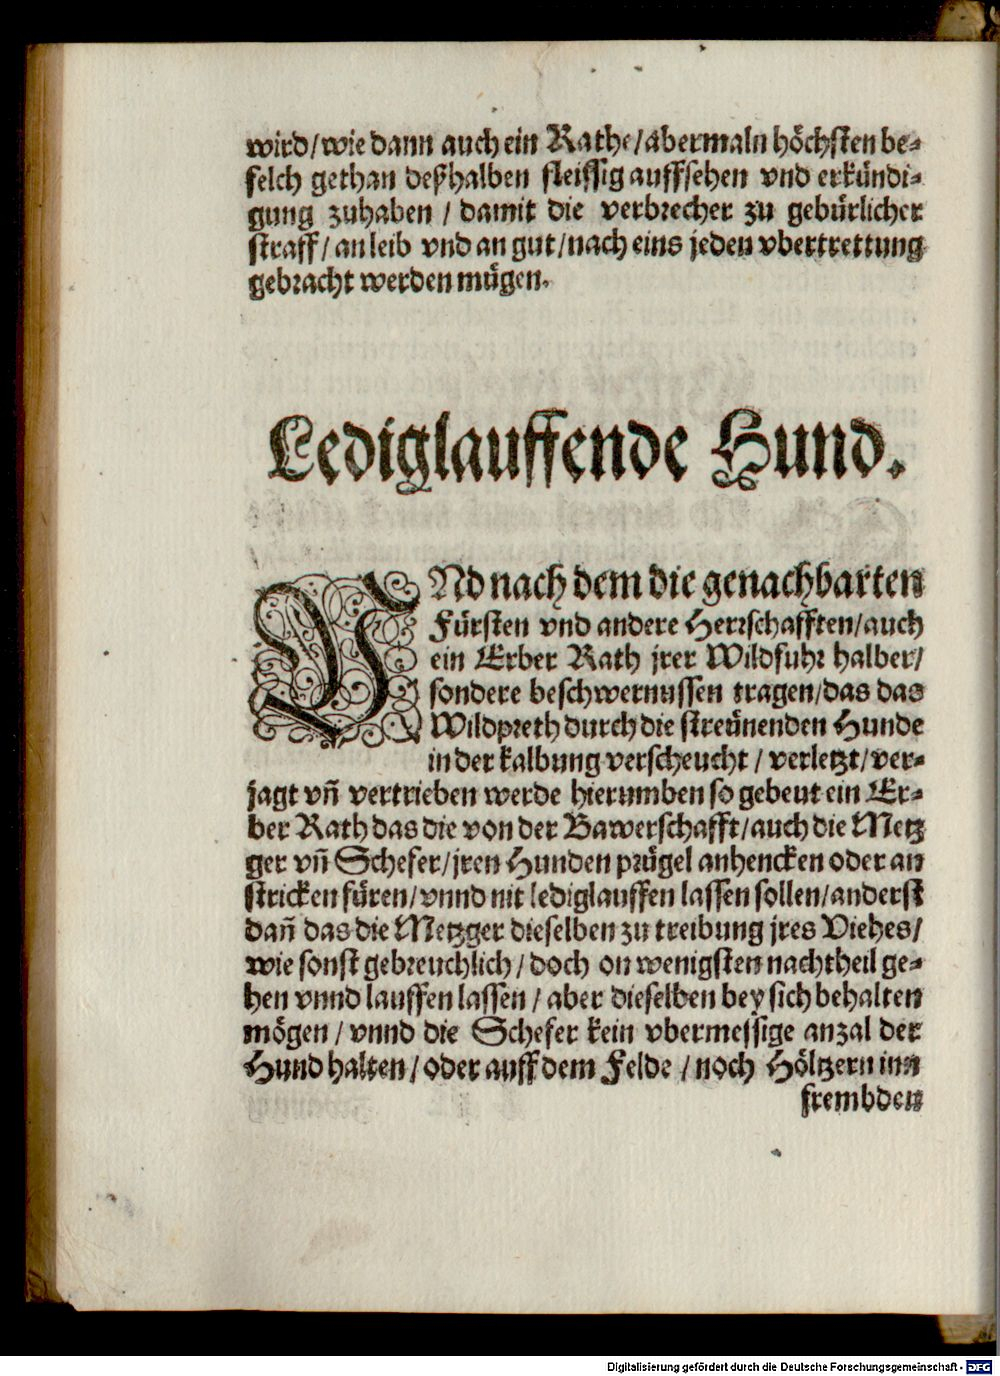 wird/wie dann auch ein Rathe/abermaln höchsten be-
felch gethan deßhalben fleissig auffsehen vnd erkündi-
gung zuhaben / damit die verbrecher zu gebürlicher
straff/an leib vnd an gut/nach eins jeden vbertrettung
gebracht werden mügen.
Lediglauffende Hund.
VNd nach dem die genachbarten
Fürsten vnd andere Herrschafften/auch
ein Erber Rath jrer Wildfuhr halber/
sondere beschwernussen tragen/das das
Wildpreth durch die streünenden Hunde
in der kalbung verscheucht / verletzt/ver-
jagt vñ vertrieben werde hierumben so gebeut ein Er-
ber Rath das die von der Bawerschafft/auch die Metz
ger vñ Schefer/jren Hunden prügel anhencken oder an
stricken füren/vnnd nit lediglauffen lassen sollen/anderst
dañ das die Metzger dieselben zu treibung jres Viehes/
wie sonst gebreuchlich/doch on wenigsten nachtheil ge-
hen vnnd lauffen lassen / aber dieselben bey sich behalten
mögen / vnnd die Schefer kein vbermessige anzal der
Hund halten/oder auff dem Felde /noch Höltzern inn
frembden
Digitalisierung gefördert durch die Deutsche Forschungsgemeinschaft - DFG